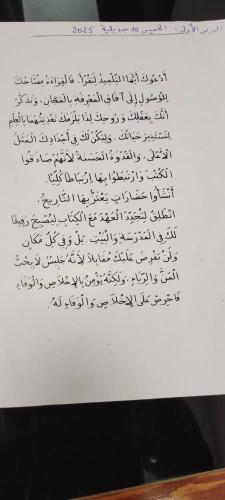 الدرس الأول: الخميس 10 جويلية 2025
أدْعُوكَ أيُّهَا التِّلْمِيذُ لِتَقْرَأَ. فَالْقِرَاءَةُ مِفْتَاحُكَ
لِلْوُصُولِ إِلَى آفَاقِ المَعْرِفَةِ بِالمَجَّانِ. وَتَذَكَّرْ
أنَّكَ بِعَقْلِكَ وَرُوحِكَ لِذَا يَلْزَمُكَ تَغْذِيَتُهُمَا بِالْعِلْمِ
لِتَسْتَنِيرَ حَيَاتُكَ. وَلْيَكُنْ لَكَ فِي أَجْدَادِكَ المَثَلُ
الأَعْلَى. وَالقُدْوَةُ الحَسَنَةُ لِأَنَّهُمْ صَادَقُوا
الكُتُبَ وَارْتَبَطُوا بِهَا اِرْتِبَاطًا كُلِّيًّا.
أَنْشَأُوا حَضَارَاتٍ يَعْتَزُّ بِهَا التَّارِيخُ.
اِنْطَلِقْ لِتُجَدِّدَ العَهْدَ مَعَ الْكِتَابِ لِيُصْبِحَ رَفِيقًا
لَكَ فِي المَدْرَسَةِ وَالْبَيْتِ. بَلْ وَفِي كُلِّ مَكَانٍ
وَلَنْ يَفْرِضَ عَلَيْكَ مُقَابِلاً لِأَنَّهُ جَلِيسٌ لَا يُحِبُّ
المَنَّ وَالرِّيَاءَ. وَلَكِنَّهُ يُؤْمِنُ بِالإِخْلَاصِ وَالْوَفَاءِ
فَاحْرِصْ عَلَى الإِخْلَاصِ وَالْوَفَاءِ لَهُ.